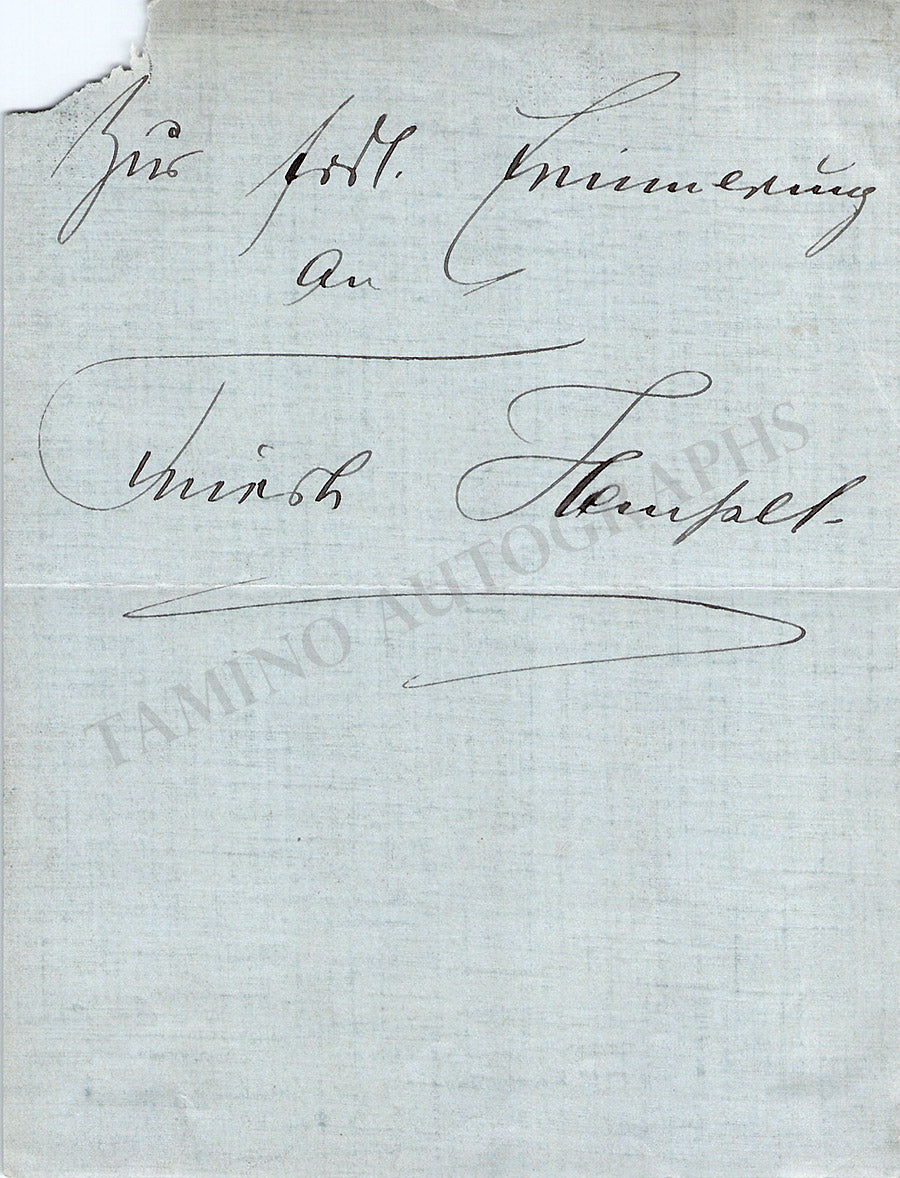 Zur frdl. Erinnerung
an
Frieda Hempel.
TAMINO AUTOGRAPHS